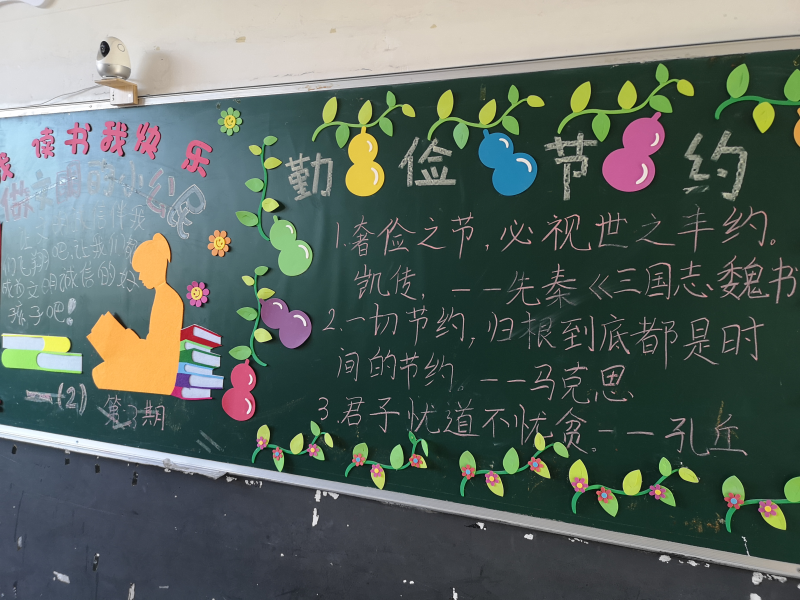 我 读书我快乐
做文明的小公民
们飞翔吧,让我们读
成为文明诚信的好
孩子吧!
一(2) 第3期
勤俭节约
1.奢俭之节,必视世之丰约。
凯传,——先秦《三国志·魏书
2.一切节约,归根到底都是时
间的节约。——马克思
3.君子忧道不忧贪。——孔丘